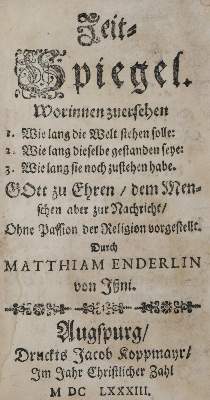 Zeit-
Spiegel.
Worinnen zuersehen
1. Wie lang die Welt stehen solle:
2. Wie lang dieselbe gestanden seye:
3. Wie lang sie noch zustehen habe.
GOtt zu Ehren / dem Men-
schen aber zur Nachricht /
Ohne Passion der Religion vorgestellt.
Durch
MATTHIAM ENDERLIN
von Ißni.
Augspurg /
Druckts Jacob Koppmayr /
Im Jahr Christlicher Zahl
M DC LXXXIII.